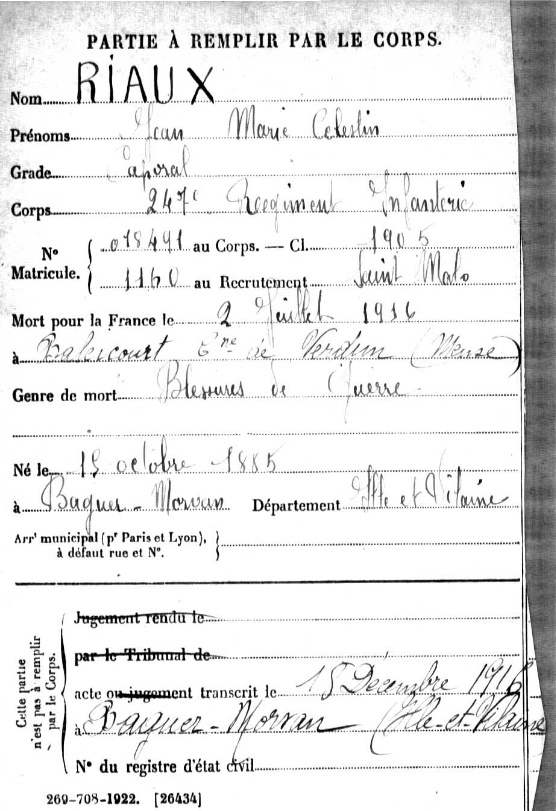 PARTIE À REMPLIR PAR LE CORPS.
Nom RIAUX
Prénoms Jean Marie Celestin
Grade Caporal
Corps 247e Regiment Infanterie
N° Matricule. 018491 au Corps. — Cl. 1905
1160 au Recrutement Saint Malo
Mort pour la France le 2 Juillet 1916
à Baleicourt Cne de Verdun (Meuse)
Genre de mort Blessures de Guerre
Né le 15 octobre 1885
à Baguer-Morvan Département Ille et Vilaine
Arrt municipal (pr Paris et Lyon),
à défaut rue et N°.
Cette partie n'est pas à remplir par le Corps.
Jugement rendu le
par le Tribunal de
acte ou jugement transcrit le 15 Décembre 1916
à Baguer-Morvan (Ille-et-Vilaine
N° du registre d'état civil
269-708-1922. [26434]